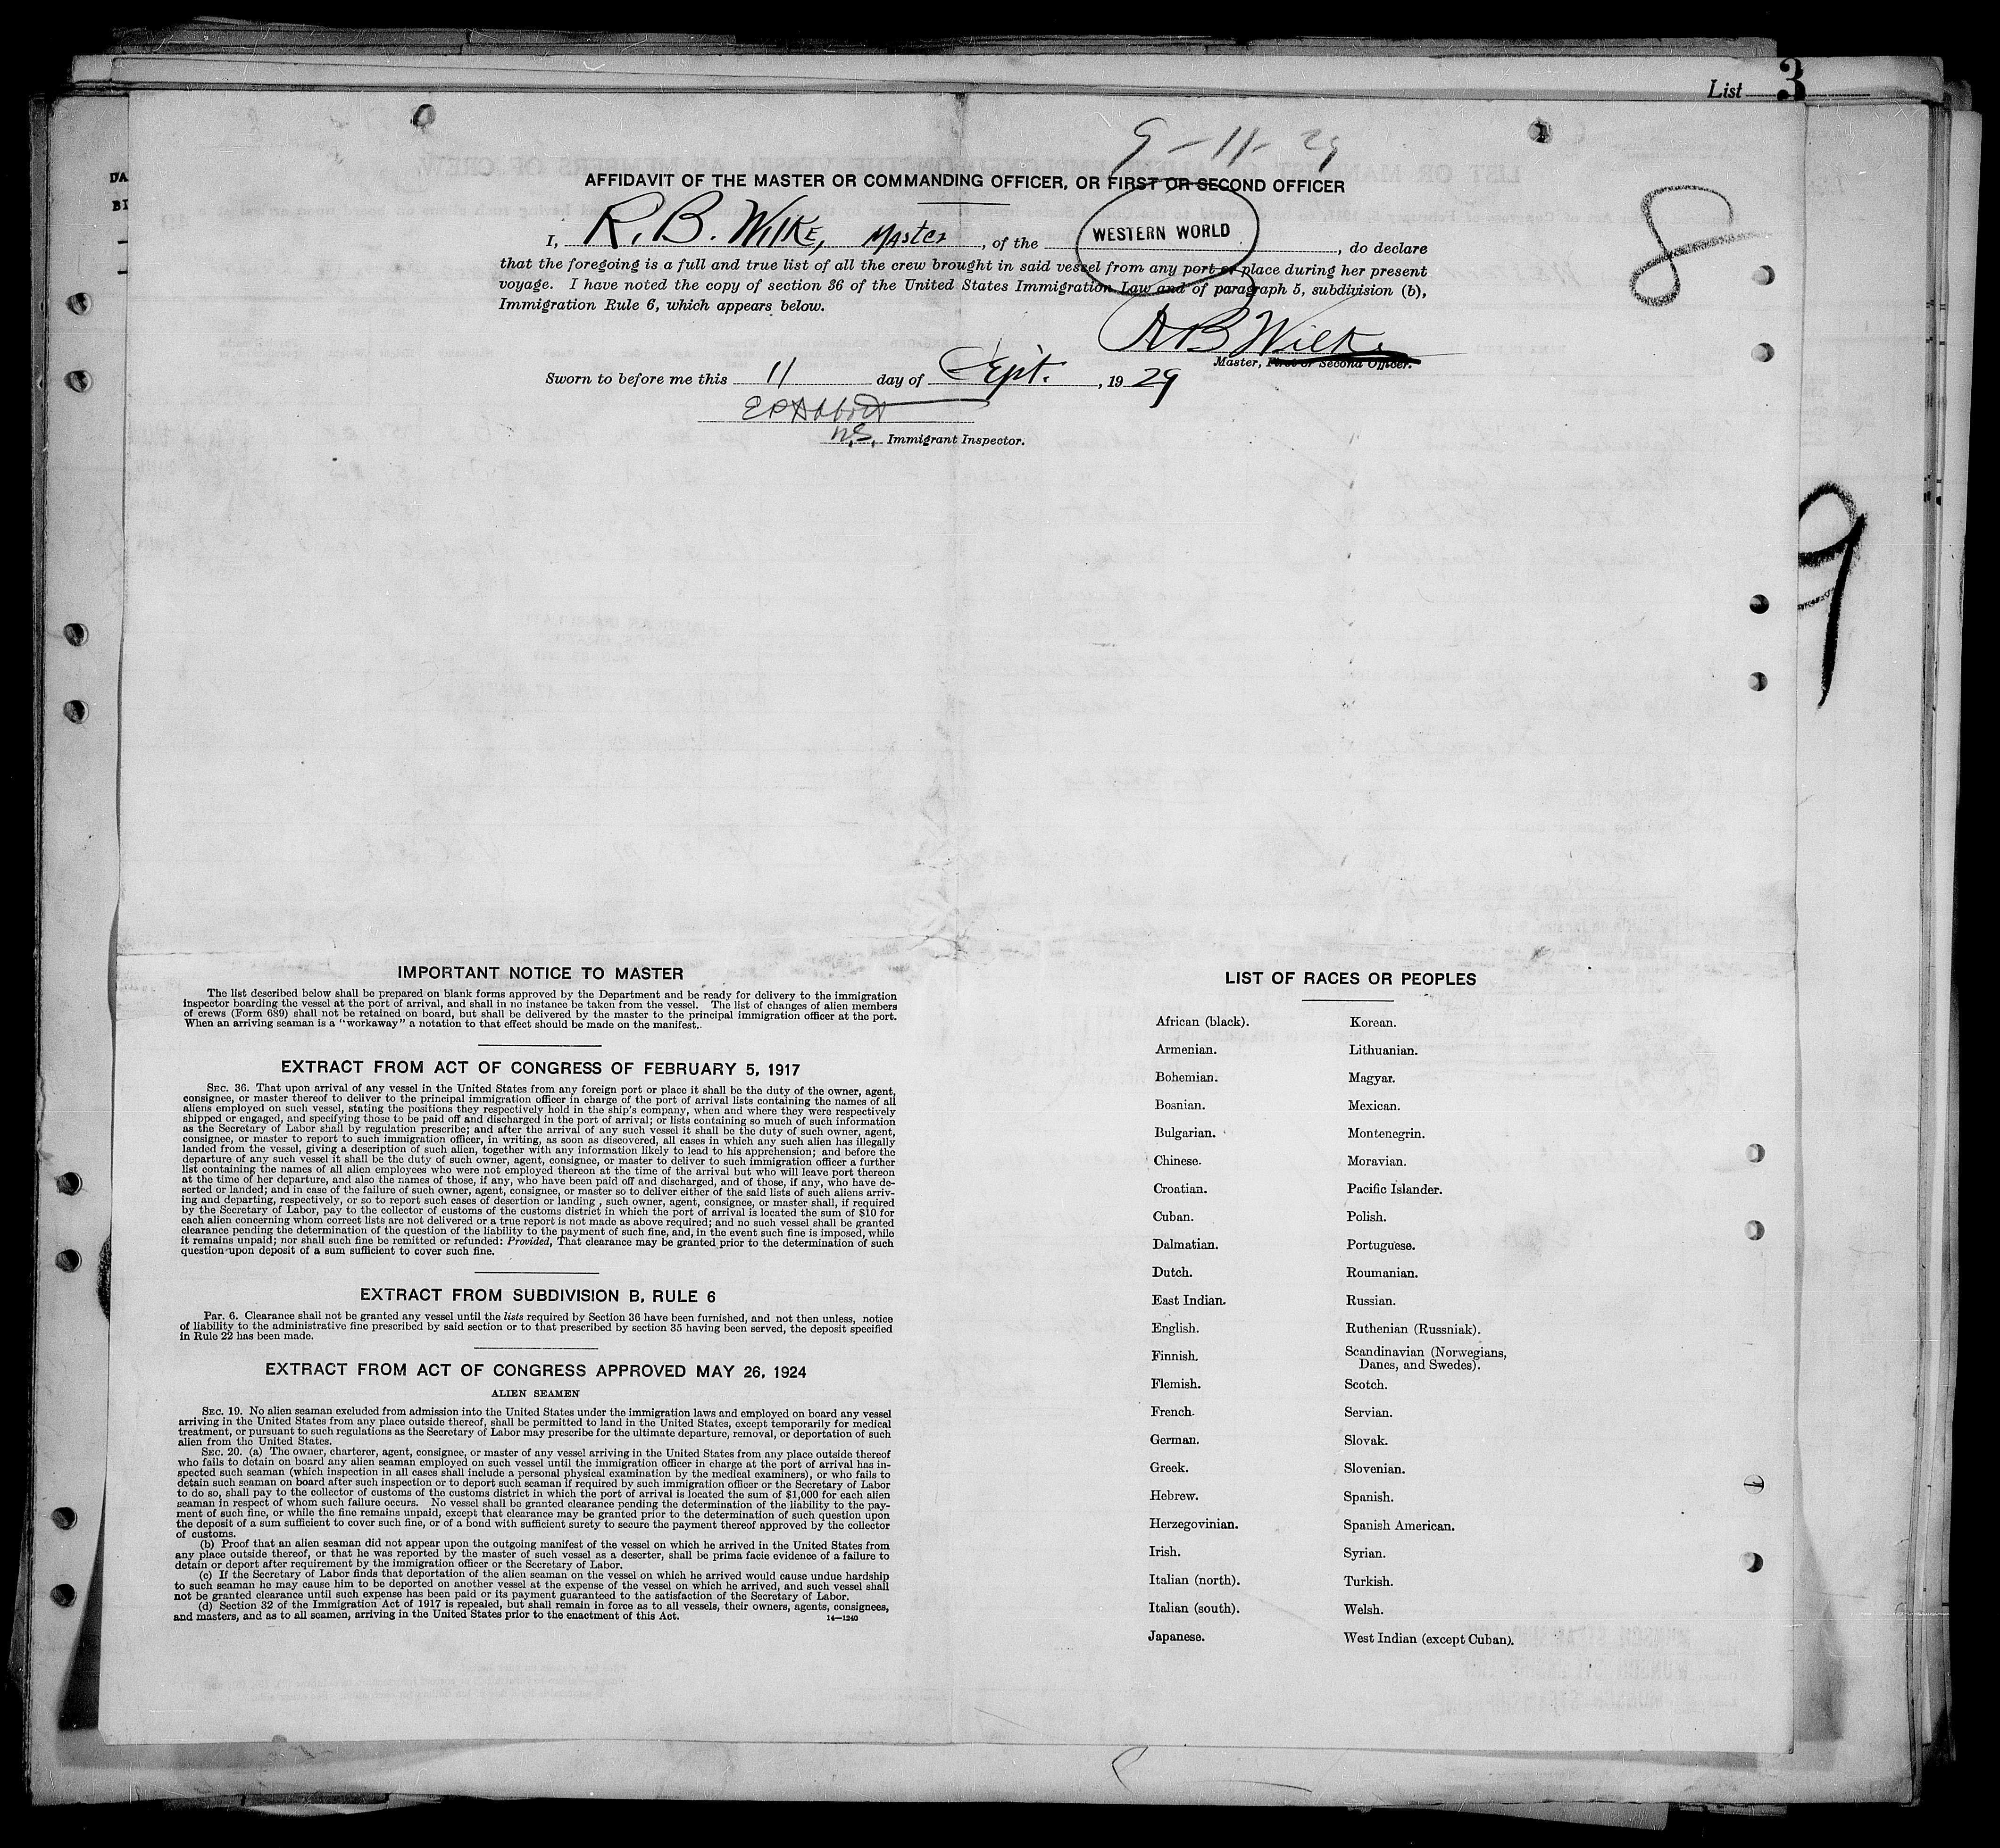 List 3
9-11-29
AFFIDAVIT OF THE MASTER OR COMMANDING OFFICER, OR FIRST OR SECOND OFFICER
8
I, R. B. Wilke, Master, of the WESTERN WORLD, do declare
that the foregoing is a full and true list of all the crew brought in said vessel from any port or place during her present
voyage. I have noted the copy of section 36 of the United States Immigration Law and of paragraph 5, subdivision (b),
Immigration Rule 6, which appears below.
R B Wilke
Master, First or Second Officer.
Sworn to before me this 11 day of Sept., 1929
Immigrant Inspector.
9
DA
BI
IMPORTANT NOTICE TO MASTER
The list described below shall be prepared on blank forms approved by the Department and be ready for delivery to the immigration
inspector boarding the vessel at the port of arrival, and shall in no instance be taken from the vessel. The list of changes of alien members
of crews (Form 689) shall not be retained on board, but shall be delivered by the master to the principal immigration officer at the port.
When an arriving seaman is a "workaway" a notation to that effect should be made on the manifest.
EXTRACT FROM ACT OF CONGRESS OF FEBRUARY 5, 1917
SEC. 36. That upon arrival of any vessel in the United States from any foreign port or place it shall be the duty of the owner, agent,
consignee, or master thereof to deliver to the principal immigration officer in charge of the port of arrival lists containing the names of all
aliens employed on such vessel, stating the positions they respectively hold in the ship's company, when and where they were respectively
shipped or engaged, and specifying those to be paid off and discharged in the port of arrival; or lists containing so much of such information
as the Secretary of Labor shall by regulation prescribe; and after the arrival of any such vessel it shall be the duty of such owner, agent,
consignee, or master to report to such immigration officer, in writing, as soon as discovered, all cases in which any such alien has illegally
landed from the vessel, giving a description of such alien, together with any information likely to lead to his apprehension; and before the
departure of any such vessel it shall be the duty of such owner, agent, consignee, or master to deliver to such immigration officer a further
list containing the names of all alien employees who were not employed thereon at the time of the arrival but who will leave port thereon
at the time of her departure, and also the names of those, if any, who have been paid off and discharged, and of those, if any, who have de-
serted or landed; and in case of the failure of such owner, agent, consignee, or master so to deliver either of the said lists of such aliens arriv-
ing and departing, respectively, or so to report such cases of desertion or landing , such owner, agent, consignee, or master shall, if required
by the Secretary of Labor, pay to the collector of customs of the customs district in which the port of arrival is located the sum of $10 for
each alien concerning whom correct lists are not delivered or a true report is not made as above required; and no such vessel shall be granted
clearance pending the determination of the question of the liability to the payment of such fine, and, in the event such fine is imposed, while
it remains unpaid; nor shall such fine be remitted or refunded: Provided, That clearance may be granted prior to the determination of such
question upon deposit of a sum sufficient to cover such fine.
EXTRACT FROM SUBDIVISION B, RULE 6
PAR. 6. Clearance shall not be granted any vessel until the lists required by Section 36 have been furnished, and not then unless, notice
of liability to the administrative fine prescribed by said section or to that prescribed by section 35 having been served, the deposit specified
in Rule 22 has been made.
EXTRACT FROM ACT OF CONGRESS APPROVED MAY 26, 1924
ALIEN SEAMEN
SEC. 19. No alien seaman excluded from admission into the United States under the immigration laws and employed on board any vessel
arriving in the United States from any place outside thereof, shall be permitted to land in the United States, except temporarily for medical
treatment, or pursuant to such regulations as the Secretary of Labor may prescribe for the ultimate departure, removal, or deportation of such
alien from the United States.
SEC. 20. (a) The owner, charterer, agent, consignee, or master of any vessel arriving in the United States from any place outside thereof
who fails to detain on board any alien seaman employed on such vessel until the immigration officer in charge at the port of arrival has in-
spected such seaman (which inspection in all cases shall include a personal physical examination by the medical examiners), or who fails to
detain such seaman on board after such inspection or to deport such seaman if required by such immigration officer or the Secretary of Labor
to do so, shall pay to the collector of customs of the customs district in which the port of arrival is located the sum of $1,000 for each alien
seaman in respect of whom such failure occurs. No vessel shall be granted clearance pending the determination of the liability to the pay-
ment of such fine, or while the fine remains unpaid, except that clearance may be granted prior to the determination of such question upon
the deposit of a sum sufficient to cover such fine, or of a bond with sufficient surety to secure the payment thereof approved by the collector
of customs.
(b) Proof that an alien seaman did not appear upon the outgoing manifest of the vessel on which he arrived in the United States from
any place outside thereof, or that he was reported by the master of such vessel as a deserter, shall be prima facie evidence of a failure to
detain or deport after requirement by the immigration officer or the Secretary of Labor.
(c) If the Secretary of Labor finds that deportation of the alien seaman on the vessel on which he arrived would cause undue hardship
to such seaman he may cause him to be deported on another vessel at the expense of the vessel on which he arrived, and such vessel shall
not be granted clearance until such expense has been paid or its payment guaranteed to the satisfaction of the Secretary of Labor.
(d) Section 32 of the Immigration Act of 1917 is repealed, but shall remain in force as to all vessels, their owners, agents, consignees,
and masters, and as to all seamen, arriving in the United States prior to the enactment of this Act.
14—1240
LIST OF RACES OR PEOPLES
African (black). Korean.
Armenian. Lithuanian.
Bohemian. Magyar.
Bosnian. Mexican.
Bulgarian. Montenegrin.
Chinese. Moravian.
Croatian. Pacific Islander.
Cuban. Polish.
Dalmatian. Portuguese.
Dutch. Roumanian.
East Indian. Russian.
English. Ruthenian (Russniak).
Finnish. Scandinavian (Norwegians,
Danes, and Swedes).
Flemish. Scotch.
French. Servian.
German. Slovak.
Greek. Slovenian.
Hebrew. Spanish.
Herzegovinian. Spanish American.
Irish. Syrian.
Italian (north). Turkish.
Italian (south). Welsh.
Japanese. West Indian (except Cuban).